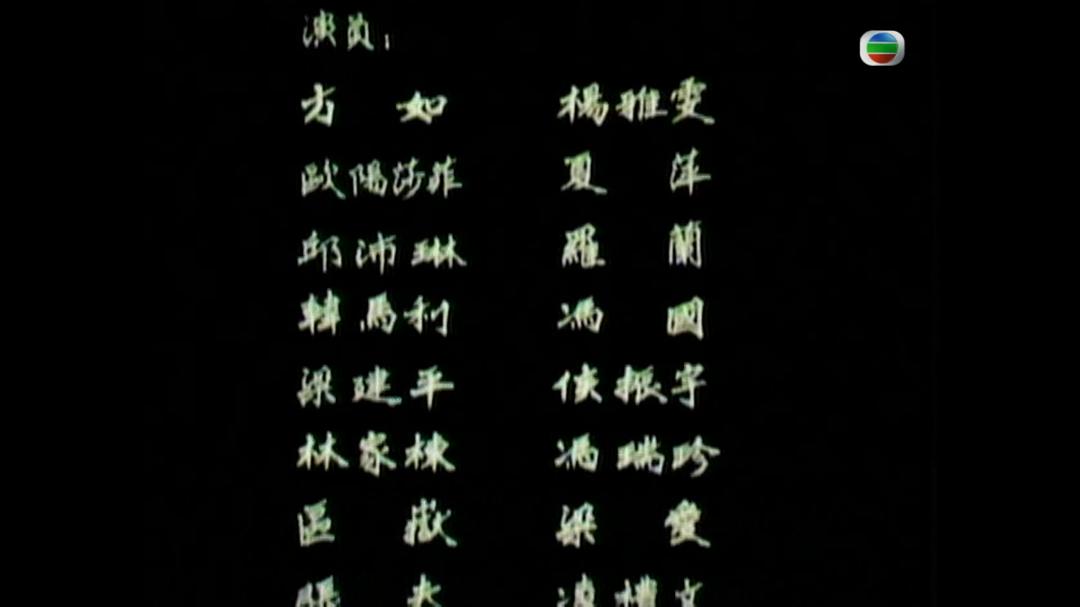 演員：
方如 楊雅雯
歐陽莎菲 夏萍
邱沛琳 羅蘭
韓馬利 馮國
梁建平 侯振宇
林家棟 馮瑞珍
區嶽 梁愛